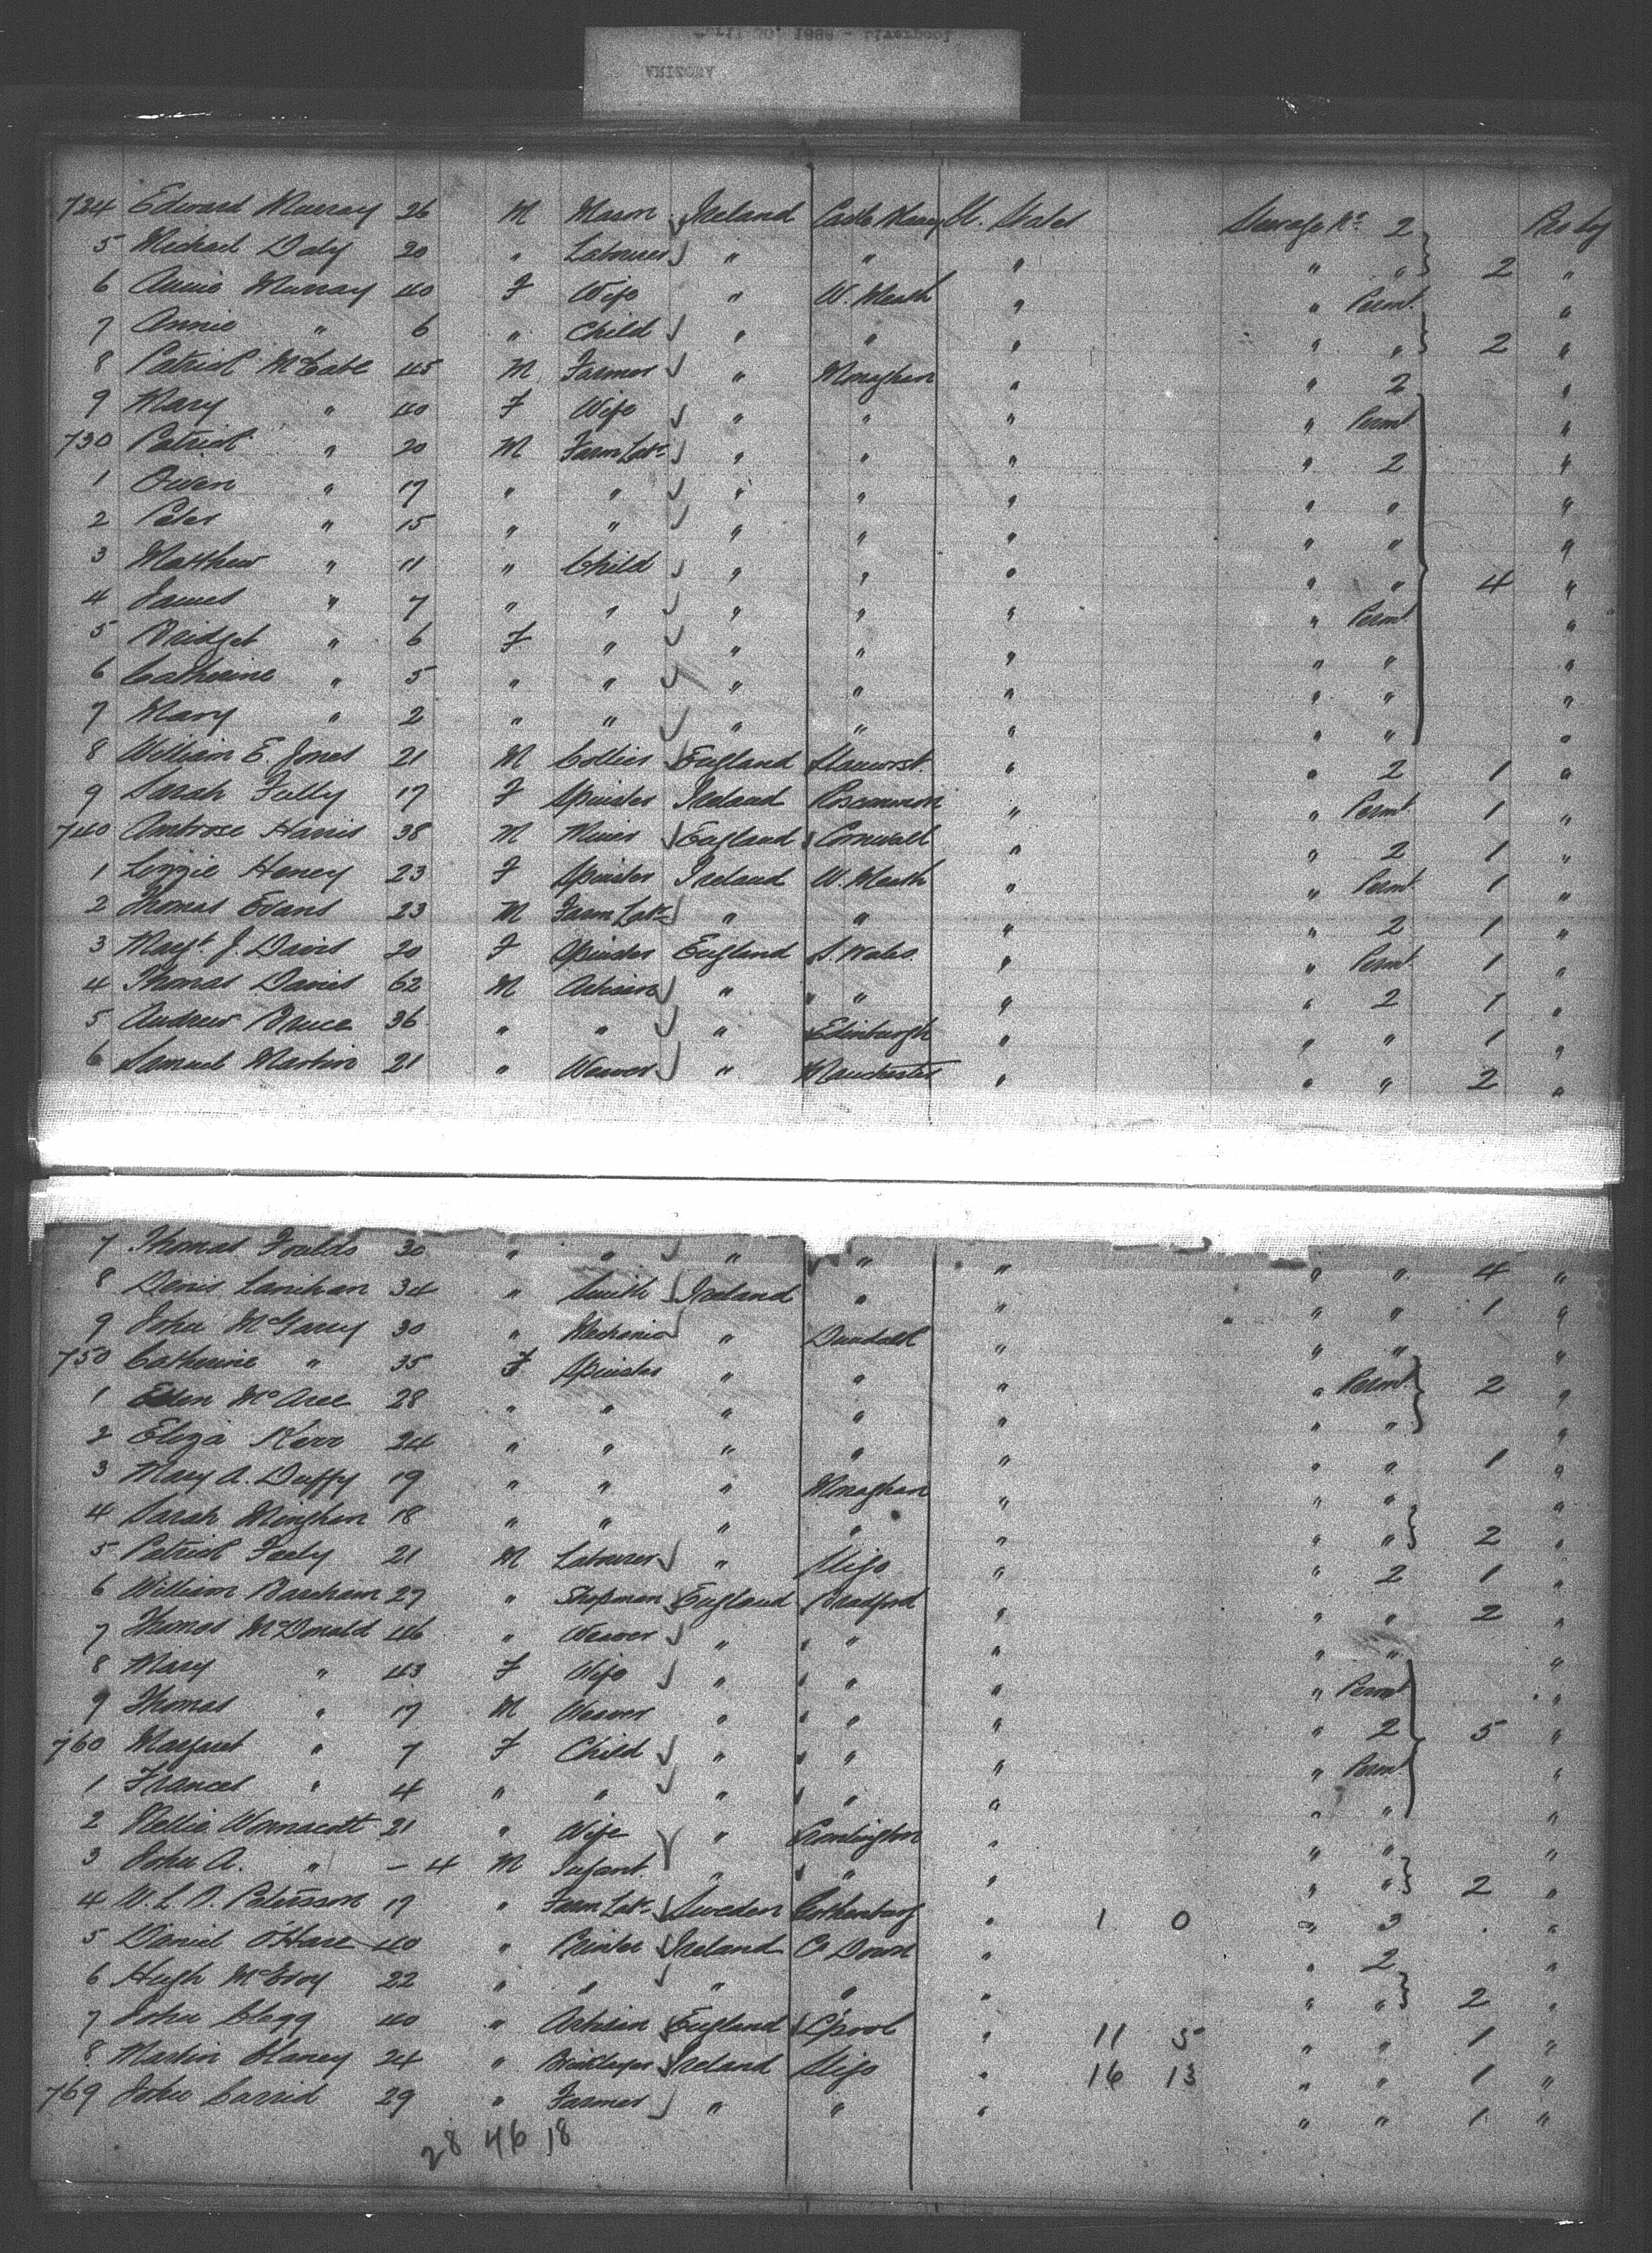 April 30, 1888 - Liverpool
ARIZONA
724 Edward Murray 26 M Mason Ireland U. States Steerage No. 2
5 Michael Daly 20 " Labourer " " " " " 2 "
6 Annie Murray 40 F Wife " W. Meath " " Permt "
7 Annie " 6 " Child " " " " " 2 "
8 Patrick McCabe 45 M Farmer " Monaghan " " 2 "
9 Mary " 40 F Wife " " " " Permt "
730 Patrick " 20 M Farm Labr " " " " 2 "
1 Owen " 17 " " " " " " " "
2 Peter " 15 " " " " " " " "
3 Matthew " 11 " Child " " " " " 4 "
4 James " 7 " " " " " " Permt "
5 Bridget " 6 F " " " " " " "
6 Catherine " 5 " " " " " " " "
7 Mary " 2 " " " " " " " "
8 William E. Jones 21 M Collier England Llanwrst. " " 2 1 "
9 Sarah Fully 17 F Spinster Ireland Roscommon " " Permt 1 "
740 Ambrose Harris 38 M Miner England Cornwall " " 2 1 "
1 Lizzie Heney 23 F Spinster Ireland W. Meath " " Permt 1 "
2 Thomas Evans 23 M Farm Labr " " " " 2 1 "
3 Margt. J. Davis 20 F Spinster England S. Wales " " Permt 1 "
4 Thomas Davis 62 M Artisan " " " " 2 1 "
5 Andrew Bruce 36 " " " Edinburgh " " " 1 "
6 Samuel Martin 21 " Weaver " Manchester " " " 2 "
7 Thomas Foulds 30 " " " " " " " 4 "
8 Denis Lanihan 34 " Smith Ireland " " " " 1 "
9 John McGarry 30 " Mechanic " Dundalk " " " "
750 Catherine " 35 F Spinster " " " " Permt 2 "
1 Ellen McAree 28 " " " " " " " "
2 Eliza Kerr 24 " " " " " " " 1 "
3 Mary A. Duffy 19 " " " Monaghan " " " "
4 Sarah Minghan 18 " " " " " " " 2 "
5 Patrick Feely 21 M Labourer " Sligo " " 2 1 "
6 William Bareham 27 " Shopman England Bradford " " " 2 "
7 Thomas McDonald 46 " Weaver " " " " " "
8 Mary " 43 F Wife " " " " Permt "
9 Thomas " 17 M Weaver " " " " 2 5 "
760 Margaret " 7 F Child " " " " Permt "
1 Frances " 4 " " " " " " " "
2 Nellie Wonnacott 21 " Wife " " " " "
3 John A. " - 4 M Infant. " " " " " 2 "
4 W. L. O. Petersson 17 " Farm Labr Sweden Gothenburg " 1 0 " 3 "
5 Daniel O'Hare 40 " Printer Ireland Co Down " " 2 "
6 Hugh McEvoy 22 " " " " " " " 2 "
7 John Clegg 40 " Artisan England L'pool " 11 5 " " 1 "
8 Martin Haney 24 " Bricklayer Ireland Sligo " 16 13 " " 1 "
769 John Carrid 29 " Farmer " " " " " 1 "
28 46 18